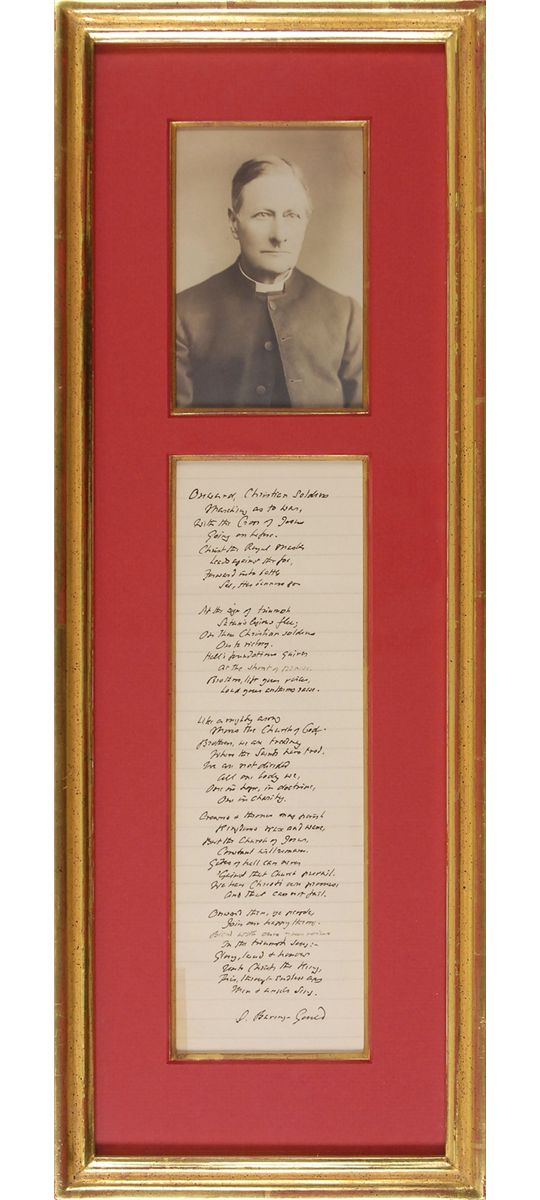 Onward, Christian Soldiers
Marching as to war,
With the Cross of Jesus
Going on before.
Christ the Royal Master
Leads against the foe,
Forward into battle
See, His banners go
At the sign of triumph
Satan's legions flee;
On then Christian soldiers
On to victory.
Hell's foundations quiver
At the shout of praise.
Brothers, lift your voices,
Loud your anthems raise.
Like a mighty army
Moves the Church of God.
Brothers, we are treading
Where the Saints have trod.
We are not divided
All one body we,
One in hope, in doctrine,
One in charity.
Crowns & thrones may perish
Kingdoms wax and wane,
But the Church of Jesus,
Constant will remain.
Gates of hell can never
'Gainst that Church prevail.
We have Christ's own promise
And that can not fail.
Onward then, ye people,
Join our happy throng.
Blend with ours your voices
In the triumph song:-
Glory, laud & honour
Unto Christ, the King,
This, through endless ages
Men & angels sing.
S. Baring-Gould